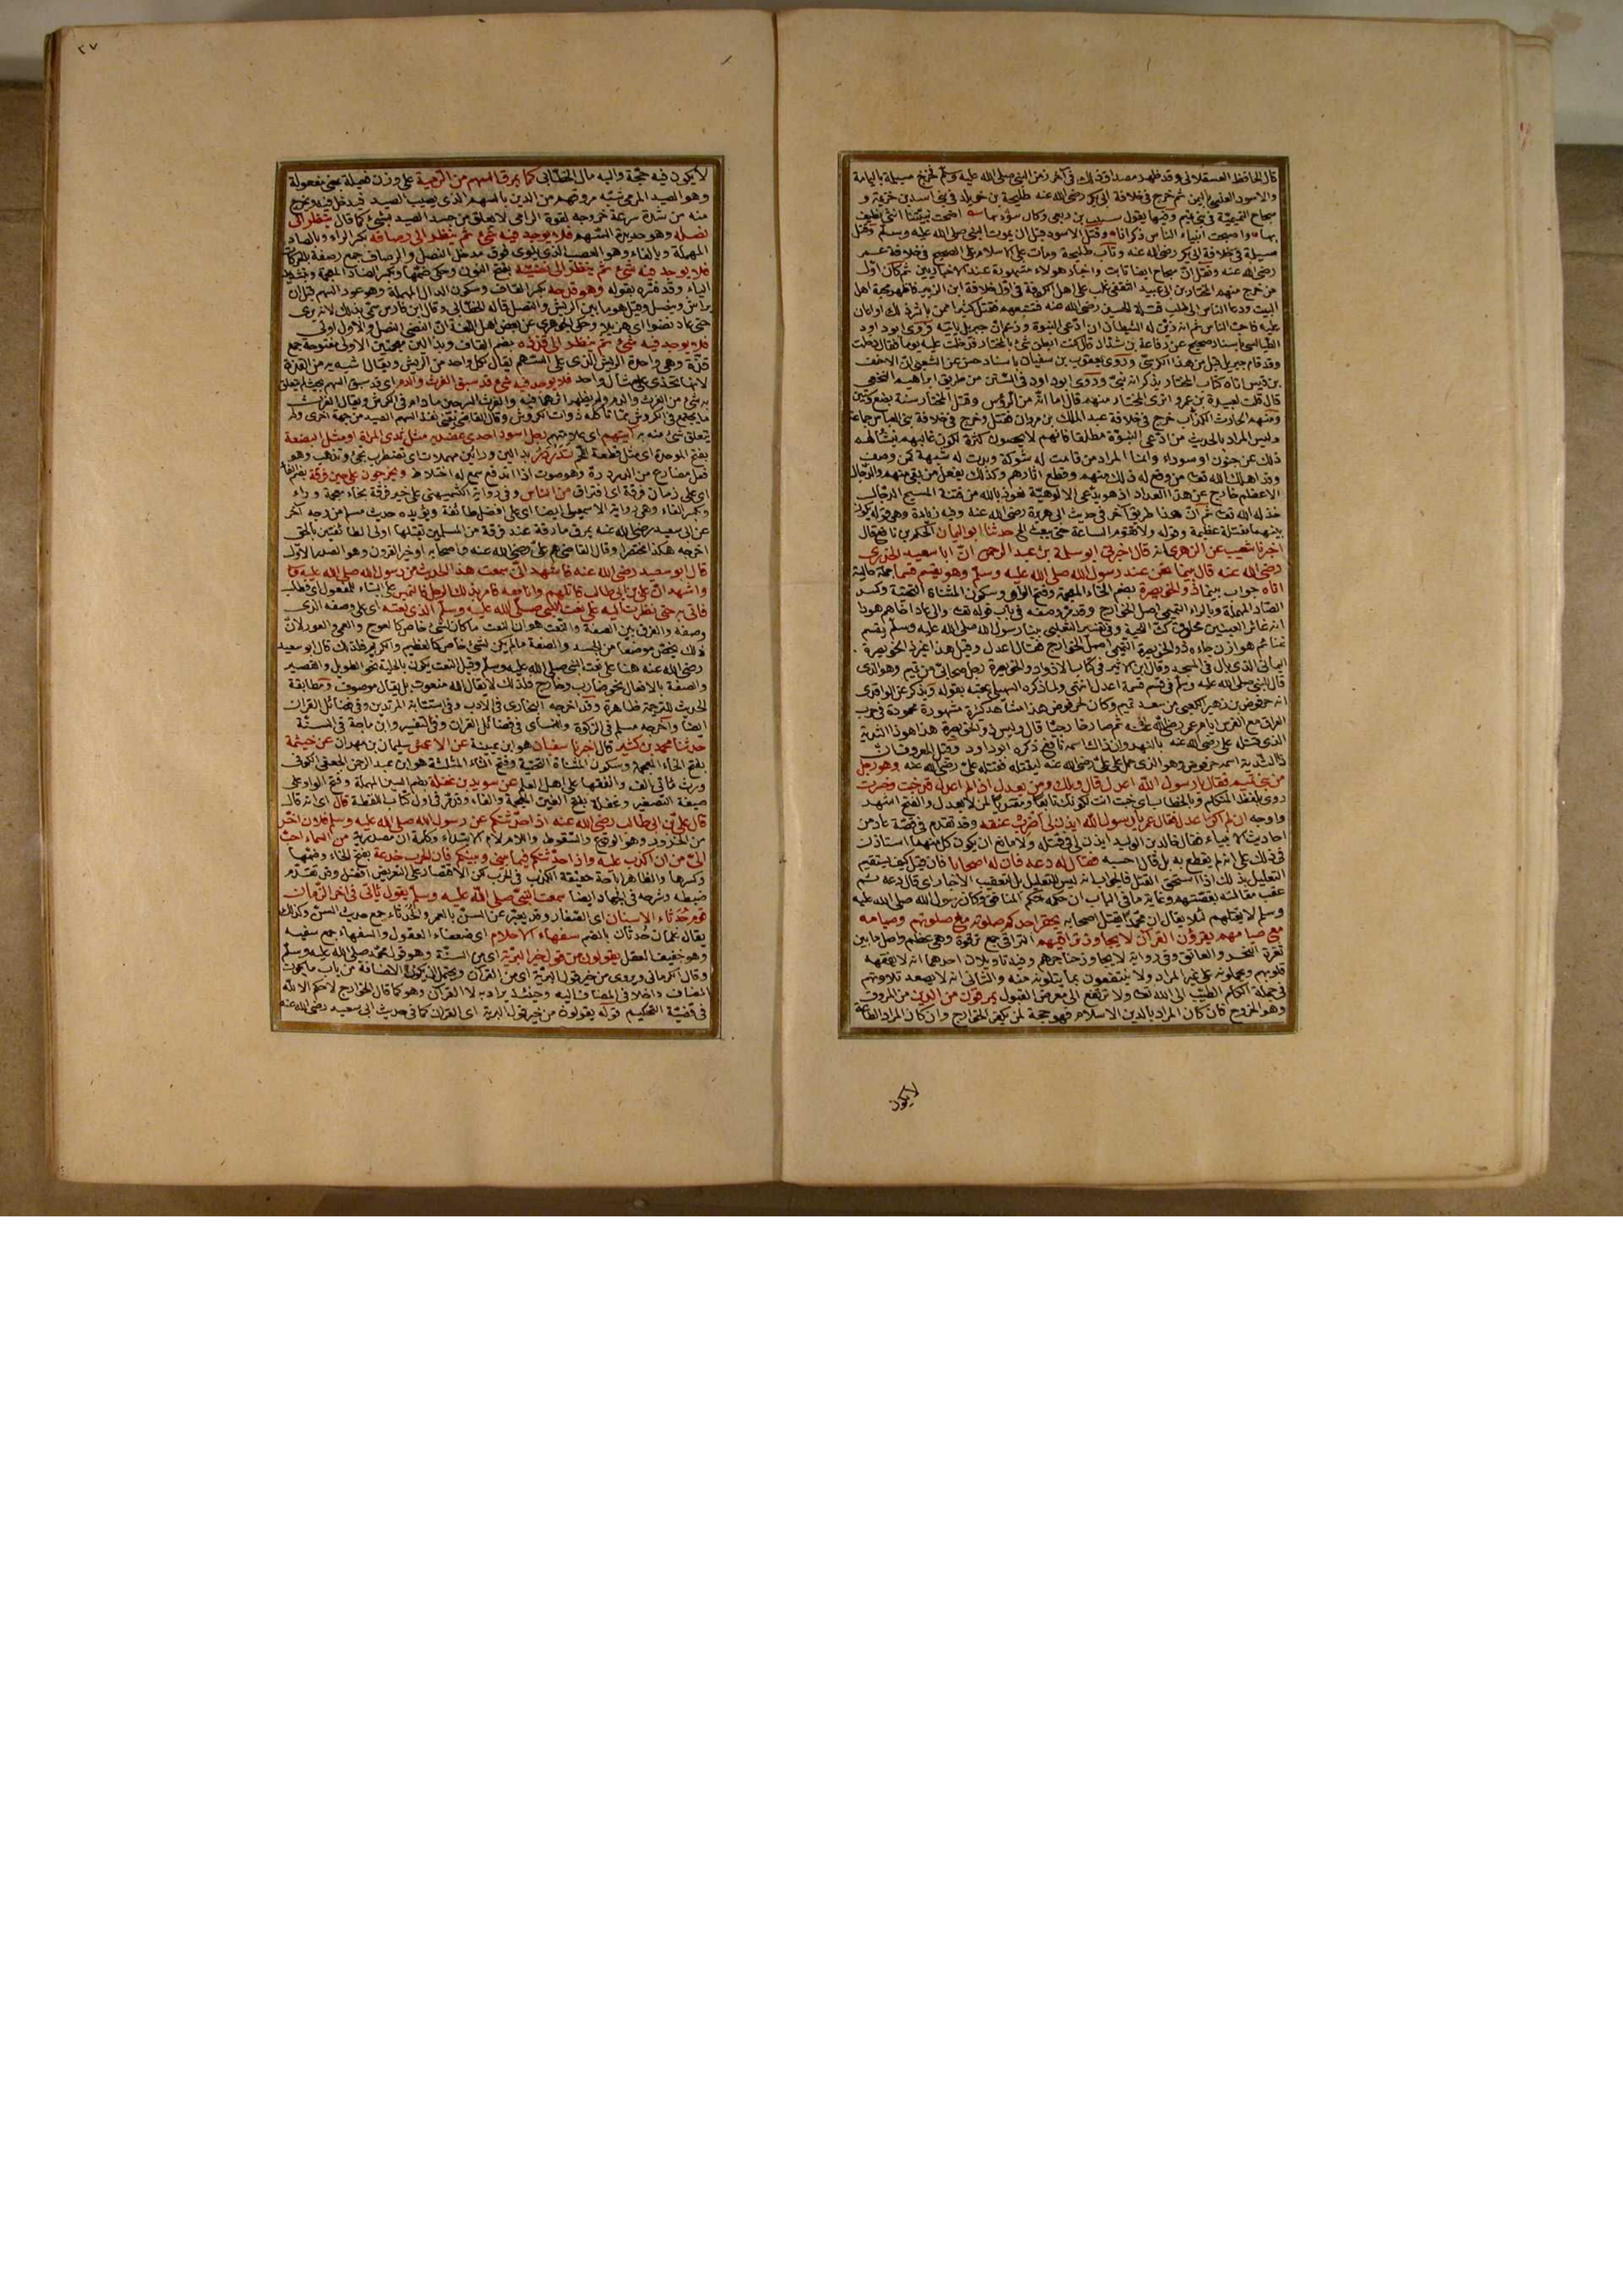 قال الحافظ العسقلاني وقد ظهر مصداق ذلك في آخر زمن النبي صلى الله عليه وسلم فخرج مسيلمة باليمامة
والاسود العنسي باليمن ثم خرج في خلافة ابي بكر رضي الله عنه طليحة بن خويلد في بني اسد بن خزيمة و
سجاح التميمية في بني تميم وفيها يقول شبيب بن ربعي وكان مؤدبها اضحت نبيتنا انثى نطيف
بها واصبحت انبياء الناس ذكرانا وقتل الاسود قبل ان يموت النبي صلى الله عليه وسلم وقتل
مسيلمة في خلافة ابي بكر رضي الله عنه وتاب طليحة ومات على الاسلام على الصحيح في خلافة عمر
رضي الله عنه ونقل ان سجاح ايضا تابت واخبار هولاء مشهورة عند الاخباريين ثم كان اول
من خرج منهم المختار بن ابي عبيد الثقفي غلب على اهل الكوفة في اول خلافة ابن الزبير فاظهر محبة اهل
البيت ودعا الناس الى طلب قتلة الحسين رضي الله عنه فتتبعهم فقتل كثيرا ممن باشر ذلك او اعان
عليه فاحبه الناس ثم انه زين له الشيطان ان ادعى النبوة وزعم ان جبريل ياتيه وروى ابو داود
الطيالسي باسناد صحيح عن رفاعة بن شداد قال كنت ابطن شيء بالمختار فدخلت عليه يوما فقال دخلت
وقد قام جبريل قبل من هذا الكرسي وروى يعقوب بن سفيان باسناد حسن عن الشعبي ان الاحنف
بن قيس اراه كتاب المختار يذكر انه نبي وروى ابو داود في السنن من طريق ابراهيم النخعي
قال قلت لعبيدة بن عمرو اترى المختار منهم قال اما انه من الرؤس وقتل المختار سنة بضع وستين
ومنهم الحارث الكذاب خرج في خلافة عبد الملك بن مروان فقتل وخرج في خلافة بني العباس جماعة
وليس المراد بالحديث من ادعى النبوة مطلقا فانهم لا يحصون كثرة لكون غالبهم ينشأ لهم
ذلك عن جنون او سوداء وانما المراد من قامت له شوكة وبدت له شبهة كمن وصفنا
وقد اهلك الله تعالى من وقع له ذلك منهم وقطع اثارهم وكذلك يفعل من بقي منهم والدجال
الاعظم خارج عن هذا العداد اذ هو يدعي الالوهية نعوذ بالله من فتنة المسيح الدجال
بينهما مقتلة عظيمة وقوله ولا تقوم الساعة حتى يبعث الخ حدثنا ابو اليمان الحكم بن نافع قال
اخبرنا شعيب عن الزهري انه قال اخبرني ابو سلمة بن عبد الرحمن ان ابا سعيد الخدري
رضي الله عنه قال بينما نحن عند رسول الله صلى الله عليه وسلم وهو يقسم قسما جملة حالية
اتاه جواب بينما ذو الخويصرة بضم الخاء المعجمة وفتح الواو وسكون المثناة التحتية وكسر
الصاد المهملة وبالراء التميمي اصل الخوارج وقد مر وصفه في باب قوله تعالى والى عاد اخاهم هودا
غنائم هوازن جاءه ذو الخويصرة التميمي اصل الخوارج فقال اعدل وقيل هذا غير ذي الخويصرة
اليماني الذي بال في المسجد وقال ابن الاثير في كتاب الاذواء ذو الخويصرة رجل صحابي من تميم وهو الذي
قال للنبي صلى الله عليه وسلم في قسم قسمه اعدل انتهى
من بني تميم فقال يا رسول الله اعدل قال ويلك ومن يعدل اذا لم اعدل قد خبت وخسرت
واوجه ان لم اكن اعدل فقال عمر يا رسول الله ايذن لي اضرب عنقه وقد تقدم في قصة عاد من
احاديث الانبياء فقال خالد بن الوليد ايذن لي في قتله ولا مانع ان يكون كل منهما استاذن
في ذلك على انه لم يقطع به بل قال احسبه فقال له دعه فان له اصحابا فان قيل كيف يستقيم
التعليل بذلك اذا استحق القتل فالجواب انه ليس للتعليل بل لتعقيب الاخبار اي قال دعه ثم
عقب مقالته بقصتهم وغاية ما في الباب ان حكمه حكم المنافق وكان رسول الله صلى الله عليه
وسلم لا يقتلهم لئلا يقال ان محمدا يقتل اصحابه يحقر احدكم صلوته مع صلوتهم وصيامه
مع صيامهم يقرؤن القرآن لا يجاوز تراقيهم التراقي جمع ترقوة وهي عظم واصل ما بين
ثغرة النحر والعاتق وفي رواية لا يجاوز حناجرهم وفيه تاويلان احدهما انه لا يفقهه
قلوبهم ويحملونه على غير المراد ولا ينتفعون بما يتلونه منه والثاني انه لا يصعد تلاوتهم
في جملة الكلم الطيب الى الله تعالى ولا ترتفع الى معرض القبول يمرقون من الدين من المروق
وهو الخروج فان كان المراد بالدين الاسلام فهو حجة لمن يكفر الخوارج وان كان المراد الطاعة
لا يكون
٢٧
لا يكون فيه حجة واليه مال الخطابي كما يمرق السهم من الرمية على وزن فعيلة بمعنى مفعولة
وهو الصيد المرمي شبه مروقهم من الدين بالسهم الذي يصيب الصيد فيدخل فيه ويخرج
منه من شدة سرعة خروجه لقوة الرامي لا يعلق من جسد الصيد بشيء كما قال ينظر الى
نصله وهو حديدة السهم فلا يوجد فيه شيء ثم ينظر الى رصافه بكسر الراء وبالصاد
المهملة وبالفاء وهو العصب الذي يلوى فوق مدخل النصل والرصاف جمع رصفة بالحركات
فلا يوجد فيه شيء ثم ينظر الى نضيه بفتح النون وحكي ضمها وبكسر الضاد المعجمة وتشديد
الياء وقد فسره بقوله وهو قدحه بكسر القاف وسكون الدال المهملة وهو عود السهم قبل ان
يراش وينصل وقيل هو ما بين الريش والنصل قاله الخطابي وقال ابن فارس سمي بذلك لانه بري
حتى عاد نضوا اي هزيلا وحكى الجوهري عن بعض اهل اللغة ان النضي النصل والاول اولى
فلا يوجد فيه شيء ثم ينظر الى قذذه بضم القاف وبذالين معجمتين الاولى مفتوحة جمع
قذة وهي واحدة الريش الذي على السهم يقال لكل واحد من الريش ويقال اشبه به من القذة
لانها تحذى على مثال واحد فلا يوجد فيه شيء قد سبق الفرث والدم اي قد سبق السهم بحيث لم يتعلق
به شيء من الفرث والدم ولم يظهر اثرهما فيه والفرث السرجين ما دام في الكرش ويقال الفرث
ما يجتمع في الكروش مما تاكله ذوات الكروش وقال القاضي يعني نفذ السهم الصيد من جهة اخرى ولم
يتعلق شيء منه به آيتهم اي علامتهم رجل اسود احدى عضديه مثل ثدي المراة او مثل البضعة
بفتح الموحدة اي مثل قطعة اللحم تدردر بدالين وراءين مهملات اي تضطرب تجيء وتذهب وهو
فعل مضارع من الدردرة وهو صوت اذا اندفع سمع له اختلاط ويخرجون على حين فرقة بضم الفاء
اي على زمان فرقة اي افتراق من الناس وفي رواية الكشميهني على خير فرقة بخاء معجمة وراء
وبكسر الفاء وهي رواية الاسمعيلي ايضا اي على افضل طائفة ويؤيده حديث مسلم من وجه آخر
عن ابي سعيد رضي الله عنه يمرق مارقة عند فرقة من المسلمين تقتلها اولى الطائفتين بالحق
اخرجه هكذا مختصرا وقال القاضي هم علي رضي الله عنه واصحابه او خير القرون وهو الصدر الاول
قال ابو سعيد رضي الله عنه فاشهد اني سمعت هذا الحديث من رسول الله صلى الله عليه وسلم
واشهد ان علي بن ابي طالب قاتلهم وانا معه فامر بذلك الرجل فالتمس على البناء للمفعول اي فطلب
فاتي به حتى نظرت اليه على نعت النبي صلى الله عليه وسلم الذي نعته اي على وصفه الذي
وصفه والفرق بين الصفة والنعت هو ان النعت ما كان لشيء خاص كالعرج والعمى والعور لان
ذلك يخص موضعا من الجسد والصفة ما لم يكن لشيء خاص كالعظيم والكريم فلذلك قال ابو سعيد
رضي الله عنه هنا على نعت النبي صلى الله عليه وسلم وقيل النعت يكون بالحلية نحو الطويل والقصير
والصفة بالافعال نحو ضارب وخارج فلذلك لا يقال الله منعوت بل يقال موصوف ومطابقة
الحديث للترجمة ظاهرة وقد اخرجه البخاري في الادب وفي استتابة المرتدين وفي فضائل القرآن
ايضا واخرجه مسلم في الزكوة والنسائي في فضائل القرآن وفي التفسير وابن ماجة في السنة
حدثنا محمد بن كثير قال اخبرنا سفيان هو ابن عيينة عن الاعمش سليمان بن مهران عن خيثمة
بفتح الخاء المعجمة وسكون المثناة التحتية وفتح الثاء المثلثة هو ابن عبد الرحمن الجعفي الكوفي
ورث مائتي الف وانفقها على اهل العلم عن سويد بن غفلة بضم السين المهملة وفتح الواو على
صيغة التصغير وغفلة بفتح الغين المعجمة والفاء وقد مر في اول كتاب اللقطة قال اي انه قال
قال علي بن ابي طالب رضي الله عنه اذا حدثتكم عن رسول الله صلى الله عليه وسلم فلان اخر
من الخرور وهو الوقوع والسقوط واللام لام الابتداء وكلمة ان مصدرية من السماء احب
الي من ان اكذب عليه واذا حدثتكم فيما بيني وبينكم فان الحرب خدعة بفتح الخاء وضمها
وكسرها والظاهر اباحة حقيقة الكذب في الحرب لكن الاقتصار على التعريض افضل وقد تقدم
ضبطه وشرحه في الجهاد ايضا سمعت النبي صلى الله عليه وسلم يقول ياتي في اخر الزمان
قوم حدثاء الاسنان اي الصغار وقد يعبر عن السن بالعمر والحدثاء جمع حديث السن وكذلك
يقال غلمان حدثان بالضم سفهاء الاحلام اي ضعفاء العقول والسفهاء جمع سفيه
وهو خفيف العقل يقولون من قول خير البرية اي من السنة وهو قول محمد صلى الله عليه وسلم
وقال الكرماني ويروى من خير قول البرية اي من القرآن ويحتمل ان يكون الاضافة من باب ما يكون
المضاف داخلا في المضاف اليه وحينئذ يراد به لا القرآن وهو كما قال الخوارج لا حكم الا لله
في قضية التحكيم قوله يقولون من خير قول البرية اي القرآن كما في حديث ابي سعيد رضي الله عنه